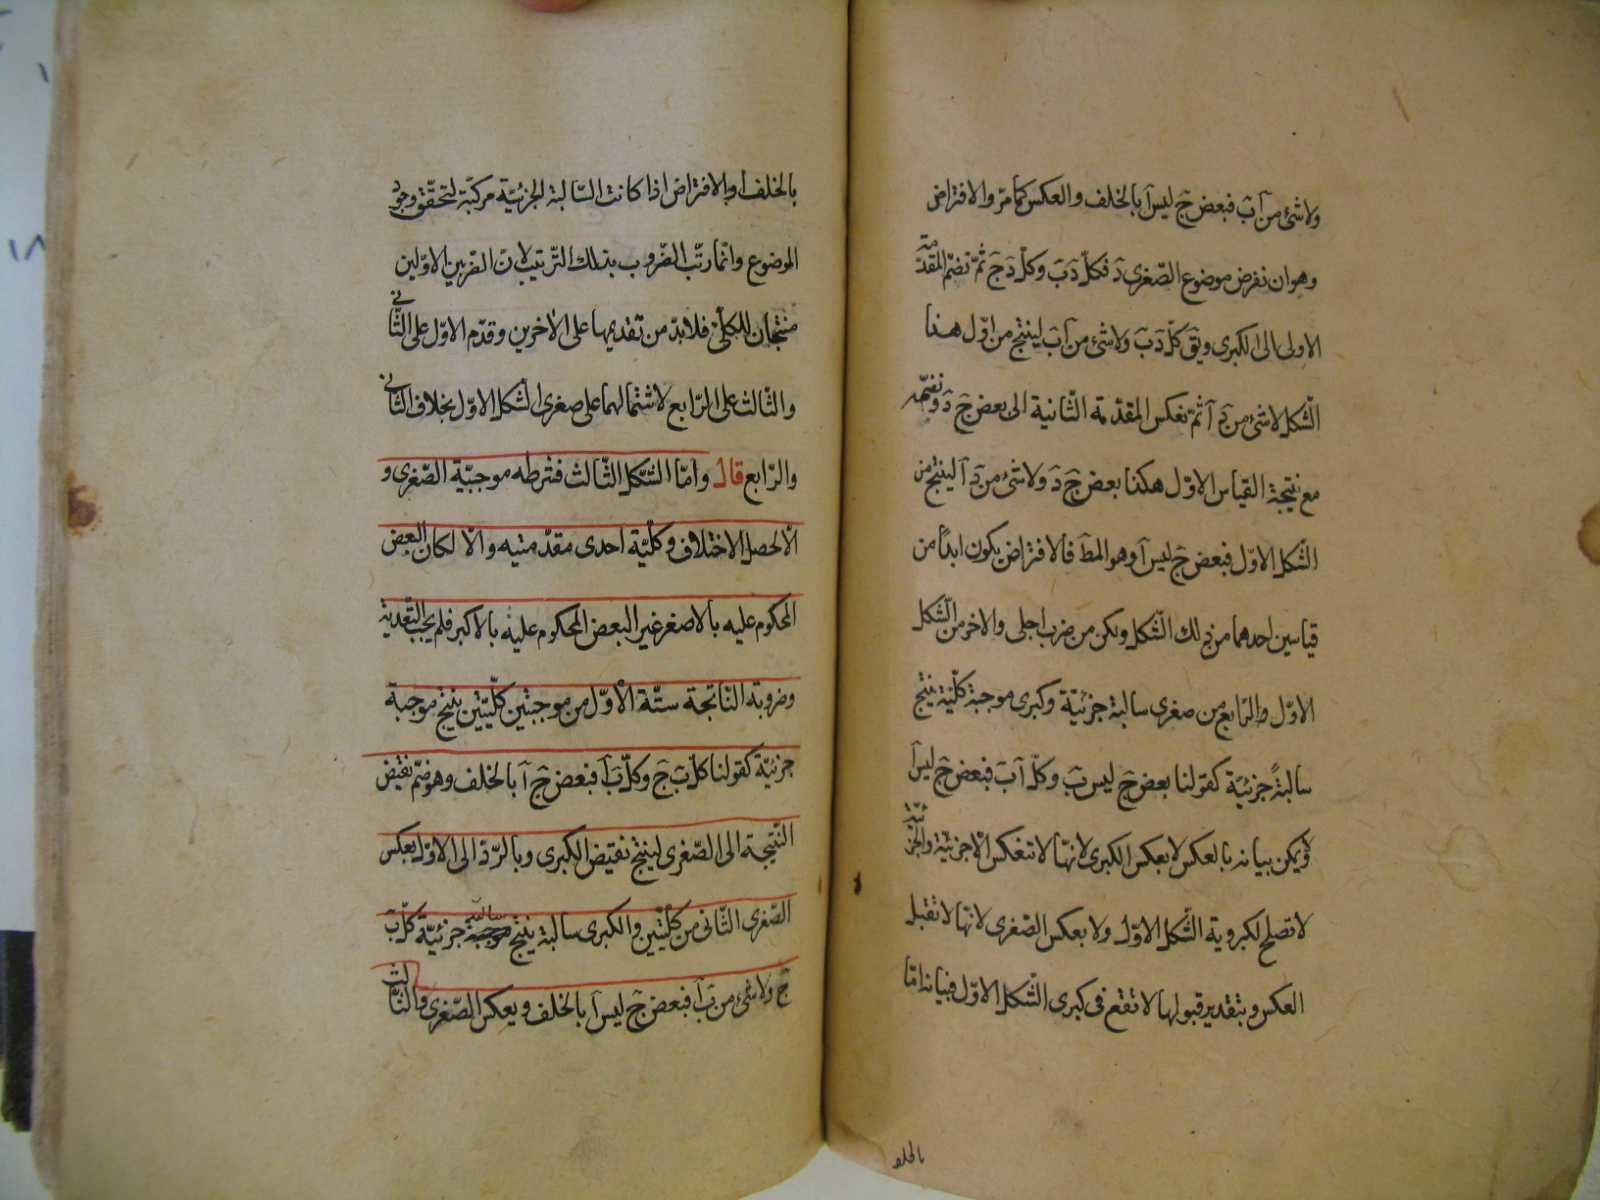 ولا شئ من آ ب فبعض ج ليس آ بالخلف والعكس كما مرّ والافتراض
وهو ان نفرض موضوع الصّغرى د فكلّ د ب وكلّ د ج ثمّ نضمّ المقدّمة
الاولى الى الكبرى ويق كلّ د ب ولا شئ من آ ب لينتج من اوّل هذا
الشّكل لا شئ من د آ ثمّ نعكس المقدّمة الثّانية الى بعض ج د ونضمّه
مع نتيجة القياس الاوّل هكذا بعض ج د ولا شئ من د آ لينتج من
الشّكل الاوّل فبعض ج ليس آ وهو المط فالافتراض يكون ابدًا من
قياسين احدهما من ذلك الشّكل ولكن من ضرب اجلى والاخر من الشّكل
الاوّل والرّابع من صغرى سالبة جزئيّة وكبرى موجبة كلّيّة ينتج
سالبةً جزئيّة كقولنا بعض ج ليس ب وكلّ آ ب فبعض ج ليس آ
ولا يمكن بيانه بالعكس لا بعكس الكبرى لانّها لا تنعكس الّا جزئيّة والجزئيّة
لا تصلح لكبروية الشّكل الاوّل ولا بعكس الصّغرى لانّها لا تقبل
العكس وبتقدير قبولها لا تقع فى كبرى الشّكل الاوّل فبيانه امّا
بالخلف
بالخلف او بالافتراض اذا كانت السّالبة الجزئيّة مركّبة لتحقّق وجود
الموضوع وانّما رتّب الضّروب بذلك التّرتيب لانّ الضّربين الاوّلين
منتجان للكلّى فلا بدّ من تقديمها على الأخرين وقدّم الاوّل على الثّانى
والثّالث على الرّابع لاشتمالهما على صغرى الشّكل الاوّل بخلاف الثّانى
والرّابع قال وامّا الشّكل الثّالث فشرطه موجبيّة الصّغرى و
الّا لحصل الاختلاف وكلّيّة احدى مقدّمتيه والّا لكان البعض
المحكوم عليه بالاصغر غير البعض المحكوم عليه بالاكبر فلم يجب التّعدية
وضروبه النّاتجة ستّة الاوّل من موجبتين كلّيّتين ينتج موجبة
جزئيّة كقولنا كلّ ب ج وكلّ ب آ فبعض ج آ بالخلف وهو ضمّ نقيض
النّتيجة الى الصّغرى لينتج نقيض الكبرى وبالرّدّ الى الاوّل بعكس
الصّغرى الثّانى من كلّيّتين والكبرى سالبة ينتج سالبة جزئيّة كلّ ب
ج ولا شئ من ب آ فبعض ج ليس آ بالخلف وبعكس الصّغرى والثّالث